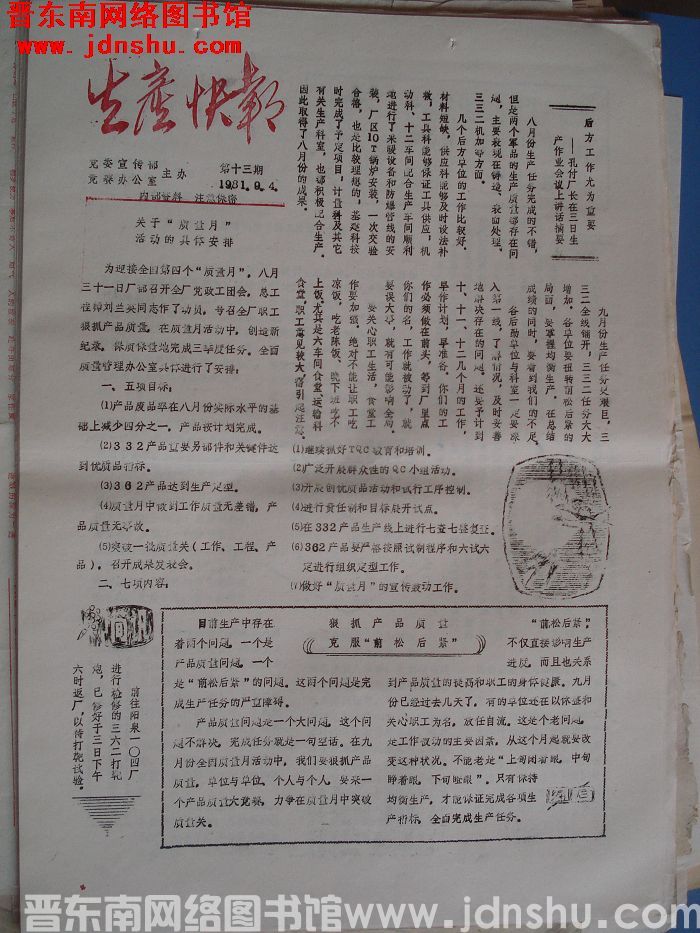 晋东南网络图书馆
www.jdnshu.com
生产快报
党委宣传部
党委办公室 主办
第十三期
1981.9.4.
内部资料 注意保密
关于“质量月”
活动的具体安排
为迎接全国第四个“质量月”，八月
三十一日厂部召开全厂党政工团会，总工
程师刘兰英同志作了动员，号召全厂职工
狠抓产品质量，在质量月活动中，创造新
纪录，保质保量地完成三季度任务。全面
质量管理办公室具体进行了安排：
一、五项目标：
(1)产品废品率在八月份实际水平的基
础上减少四分之一，产品按计划完成。
(2)332产品重要另部件和关键件达
到优质品指标。
(3)362产品达到生产定型。
(4)质量月中做到工作质量无差错，产
品质量无事故。
(5)突破一批质量关（工作、工程、产
品），召开成果发表会。
二、七项内容：
(1)继续抓好TQC教育和培训。
(2)广泛开展群众性的QC小组活动。
(3)开展创优质品活动和试行工序控制。
(4)进行责任制和目标展开试点。
(5)在332产品生产线上进行七查七整复征。
(6)362产品要严格按照试制程序和六试六
定进行组织定型工作。
(7)做好“质量月”的宣传鼓动工作。
后方工作尤为重要
——孔付厂长在三日生
产作业会议上讲话摘要
八月份生产任务完成的不错，
但是两个军品的生产质量都存在问
题，主要表现在铸造、表面处理、
三三二机加等方面。
几个后方单位的工作比较好。
材料短缺，供应科能够及时设法补
救，工具科能够保证工具供应，机
动科、十二车间配合生产车间顺利
地进行了采暖设备和防爆管线的安
装，厂区10T锅炉安装，一次交验
合格，也是比较理想的。基建科按
时完成了予定项目，计量科及其它
有关生产科室，也都积极配合生产。
因此取得了八月份的成果。
九月份生产任务更艰巨，三
三二全线铺开，三六二任务大大
增加，各单位要扭转前松后紧的
局面，要掌握均衡生产，在总结
成绩的同时，要看到我们的不足。
各后勤单位与科室一定要深
入第一线，了解情况，及时妥善
地解决存在的问题，还要予计到
十、十一、十二几个月的工作，
早作计划，早准备，你们的工
作必须做在前头，等到厂里点
你们的名，工作就被动了，就
要误大事，就有可能影响全局。
要关心职工生活，食堂工
作要加强，绝对不能让职工吃
凉饭、吃老陈饭、晚下班吃不
上饭，尤其是六车间食堂、运输科
食堂，职工意见较大，需引起注意。
前往阳泉一〇四厂
进行检修的三六二打靶
炮，已修好于三日下午
六时返厂，以待打靶试验。
狠抓产品质量
克服“前松后紧”
目前生产中存在
着两个问题。一个是
产品质量问题，一个
是“前松后紧”的问题。这两个问题是完
成生产任务的严重障碍。
产品质量问题是一个大问题，这个问
题不解决，完成任务就是一句空话。在九
月份全国质量月活动中，我们要狠抓产品
质量，单位与单位、个人与个人，要来一
个产品质量大竞赛，力争在质量月中突破
质量关。
“前松后紧”
不仅直接影响生产
进度，而且也关系
到产品质量的提高和职工的身体健康。九月
份已经过去几天了，有的单位还在以休整和
关心职工为名，放任自流。这是个老问题，
是工作被动的主要因素，从这个月起就要改
变这种状况。不能老是“上旬闭着眼，中旬
睁着眼，下旬瞪眼”。只有保持
均衡生产，才能保证完成各项生
产指标，全面完成生产任务。
晋东南网络图书馆www.jdnshu.com